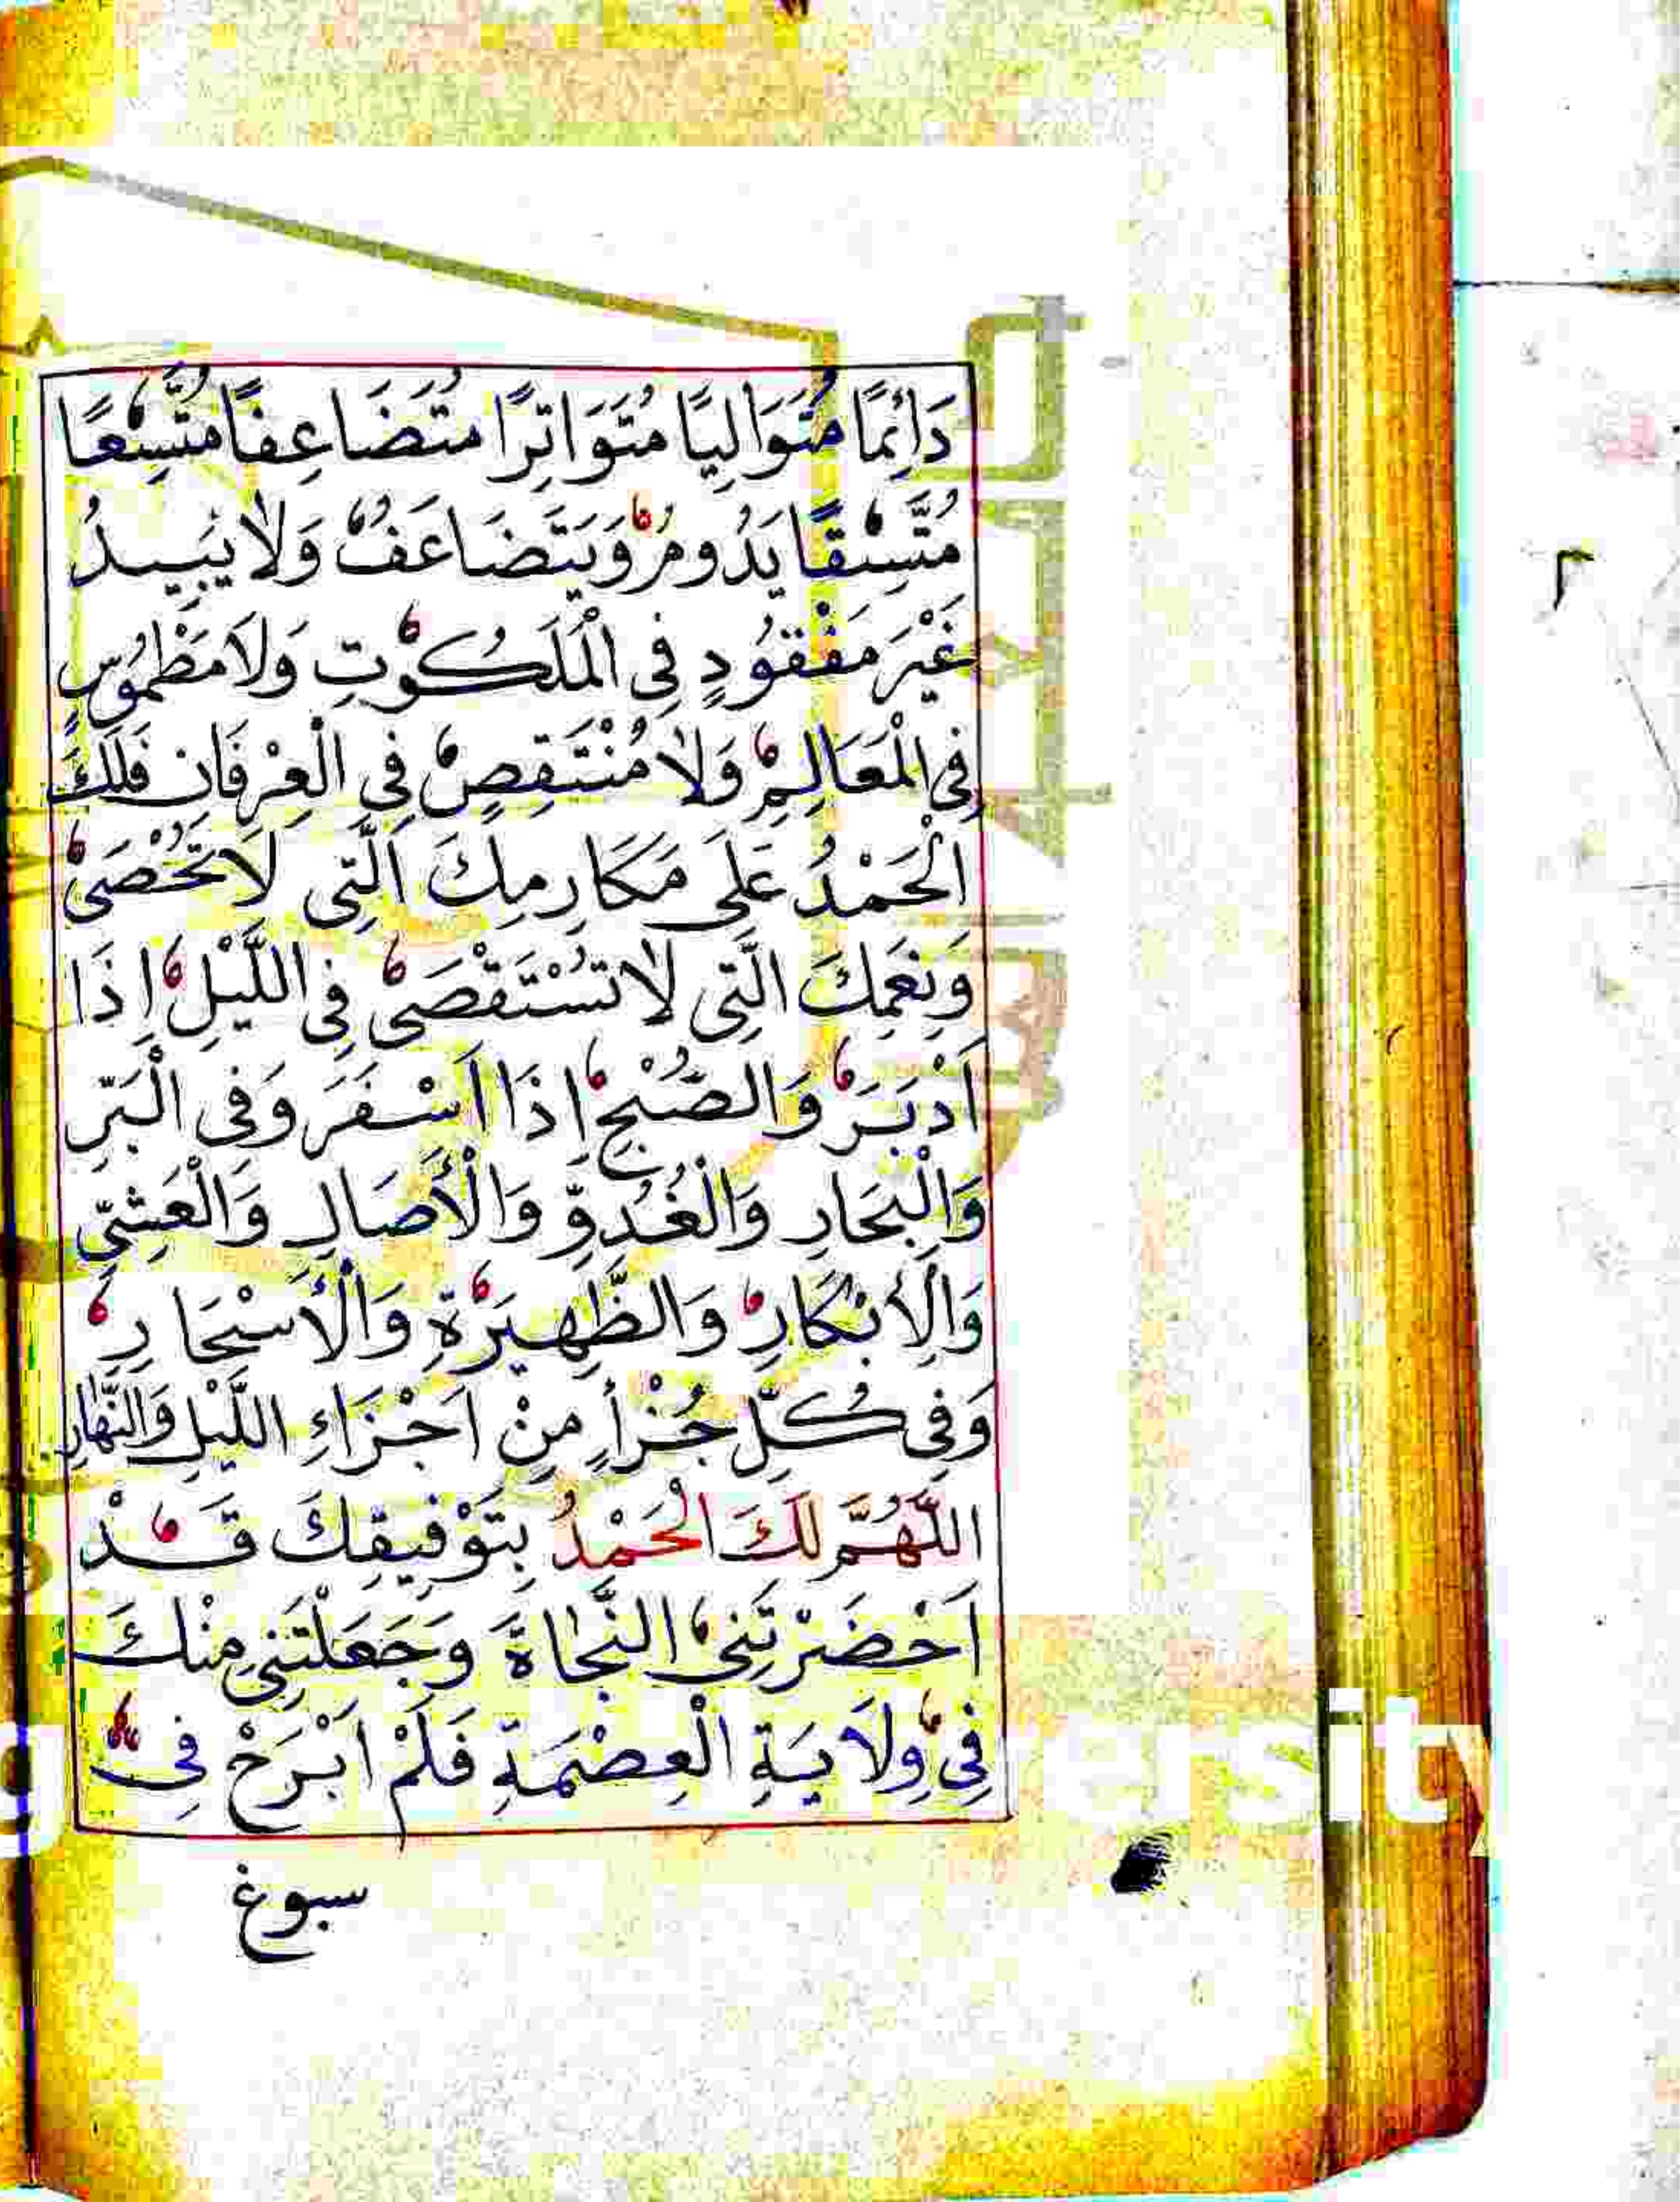 دَائِمًا مُتَوَالِيًا مُتَوَاتِرًا مُتَضَاعِفًا مُتَّسِعًا
مُتَّسِقًا يَدُومُ وَيَتَضَاعَفُ وَلَا يَبِيدُ
غَيْرَ مَفْقُودٍ فِي الْمَلَكُوتِ وَلَا مَطْمُوسٍ
فِي الْمَعَالِمِ وَلَا مُنْتَقِصٍ فِي الْعِرْفَانِ فَلَكَ
الْحَمْدُ عَلَى مَكَارِمِكَ الَّتِي لَا تُحْصَى
وَنِعَمِكَ الَّتِي لَا تُسْتَقْصَى فِي اللَّيْلِ إِذَا
اَدْبَرَ وَالصُّبْحِ إِذَا اَسْفَرَ وَفِي الْبَرِّ
وَالْبِحَارِ وَالْغُدُوِّ وَالْأَصَالِ وَالْعَشِيِّ
وَالْإِبْكَارِ وَالظَّهِيرَةِ وَالْأَسْحَارِ
وَفِي كُلِّ جُزْأٍ مِنْ اَجْزَاءِ اللَّيْلِ وَالنَّهَارِ
اللَّهُمَّ لَكَ الْحَمْدُ بِتَوْفِيقِكَ قَدْ
اَحْضَرْتَنِي النَّجَاةَ وَجَعَلْتَنِي مِنْكَ
فِي وِلَايَةِ الْعِصْمَةِ فَلَمْ اَبْرَحْ فِي
سبوغ
ersity